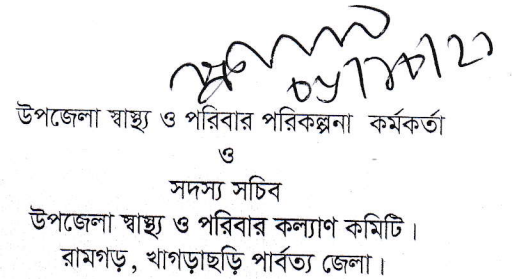 উপজেলা স্বাস্থ্য ও পরিবার পরিকল্পনা কর্মকর্তা
ও
সদস্য সচিব
উপজেলা স্বাস্থ্য ও পরিবার কল্যাণ কমিটি।
রামগড়, খাগড়াছড়ি পার্বত্য জেলা।